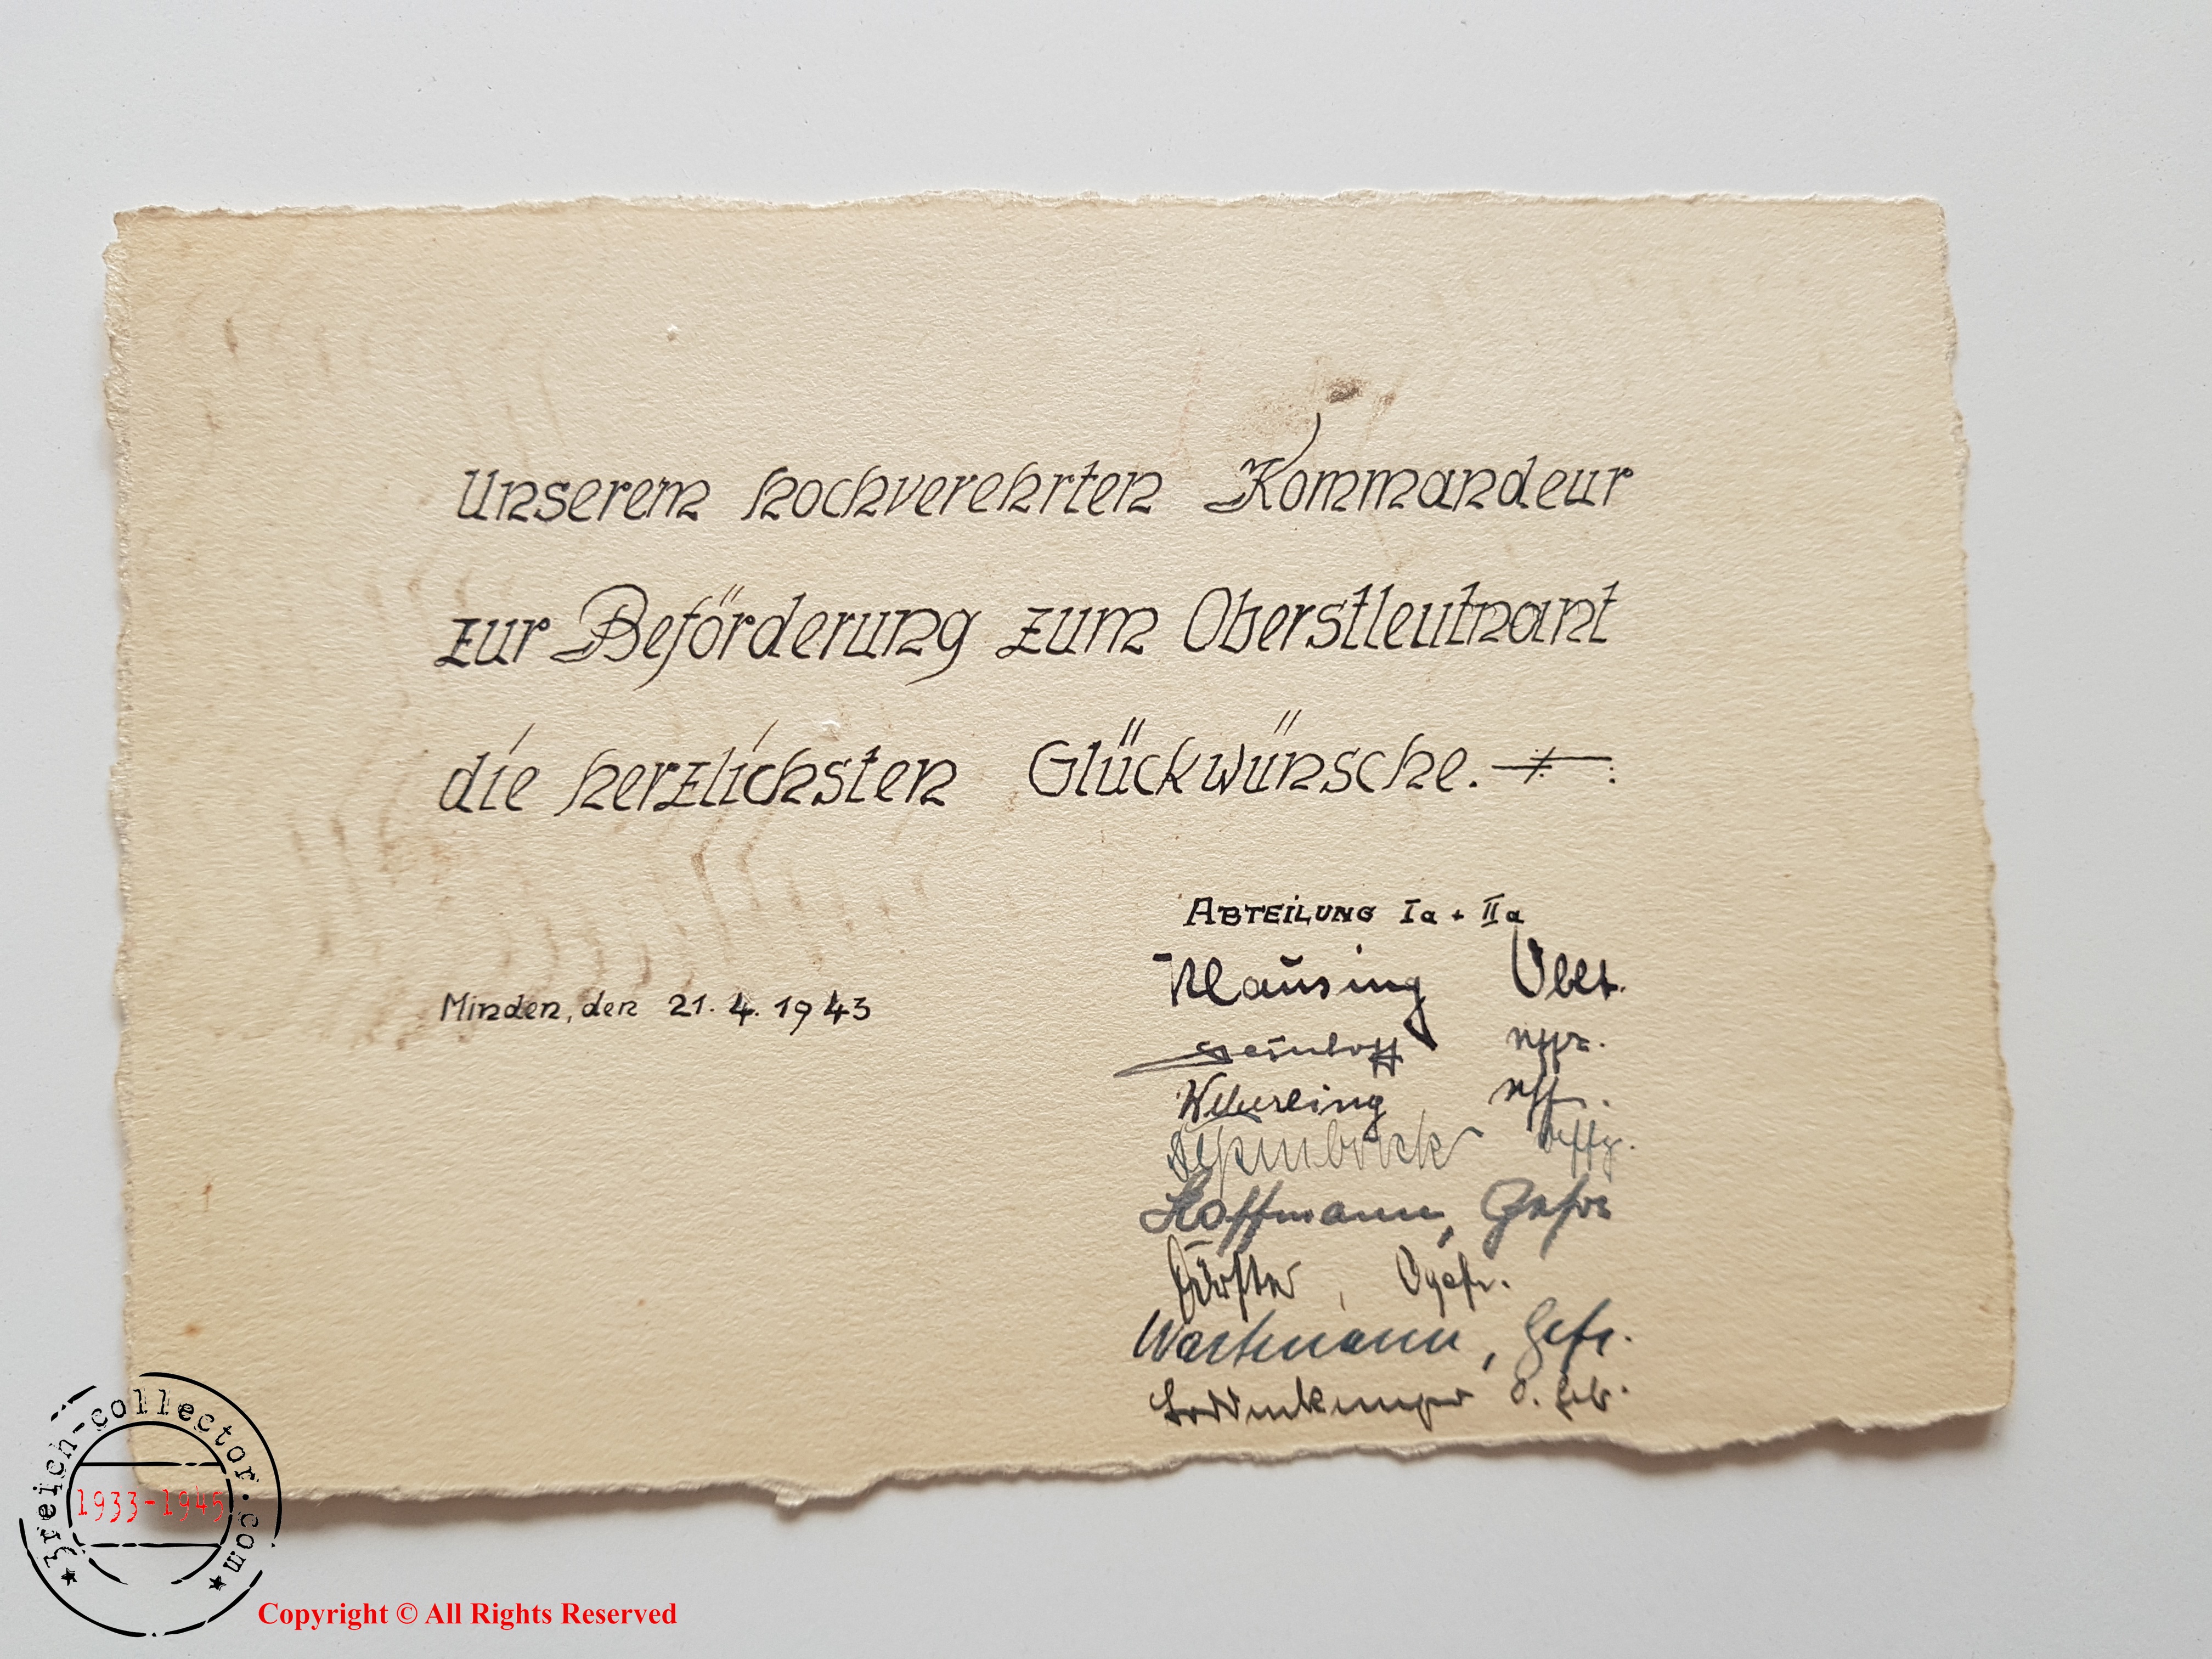 Unserem hochverehrten Kommandeur
zur Beförderung zum Oberstleutnant
die herzlichsten Glückwünsche.
ABTEILUNG Ia + IIa
Minden, den 21. 4. 1943
Klausing Oblt.
Uffz.
Weberling Uffz.
Uffz.
Hoffmann, Gefr
Fürste, Ogefr.
Wortmann, Gefr.
3reich-collector.com
1933-1945
Copyright © All Rights Reserved